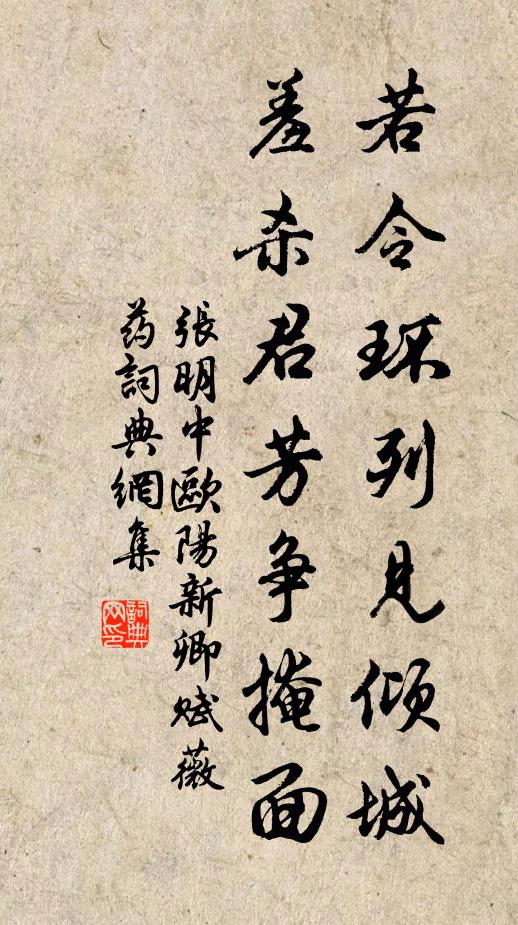 若令环列見傾城
羞杀君芳争掩面
張明中歐陽新卿赋薇
药詞典網集
詞典网印